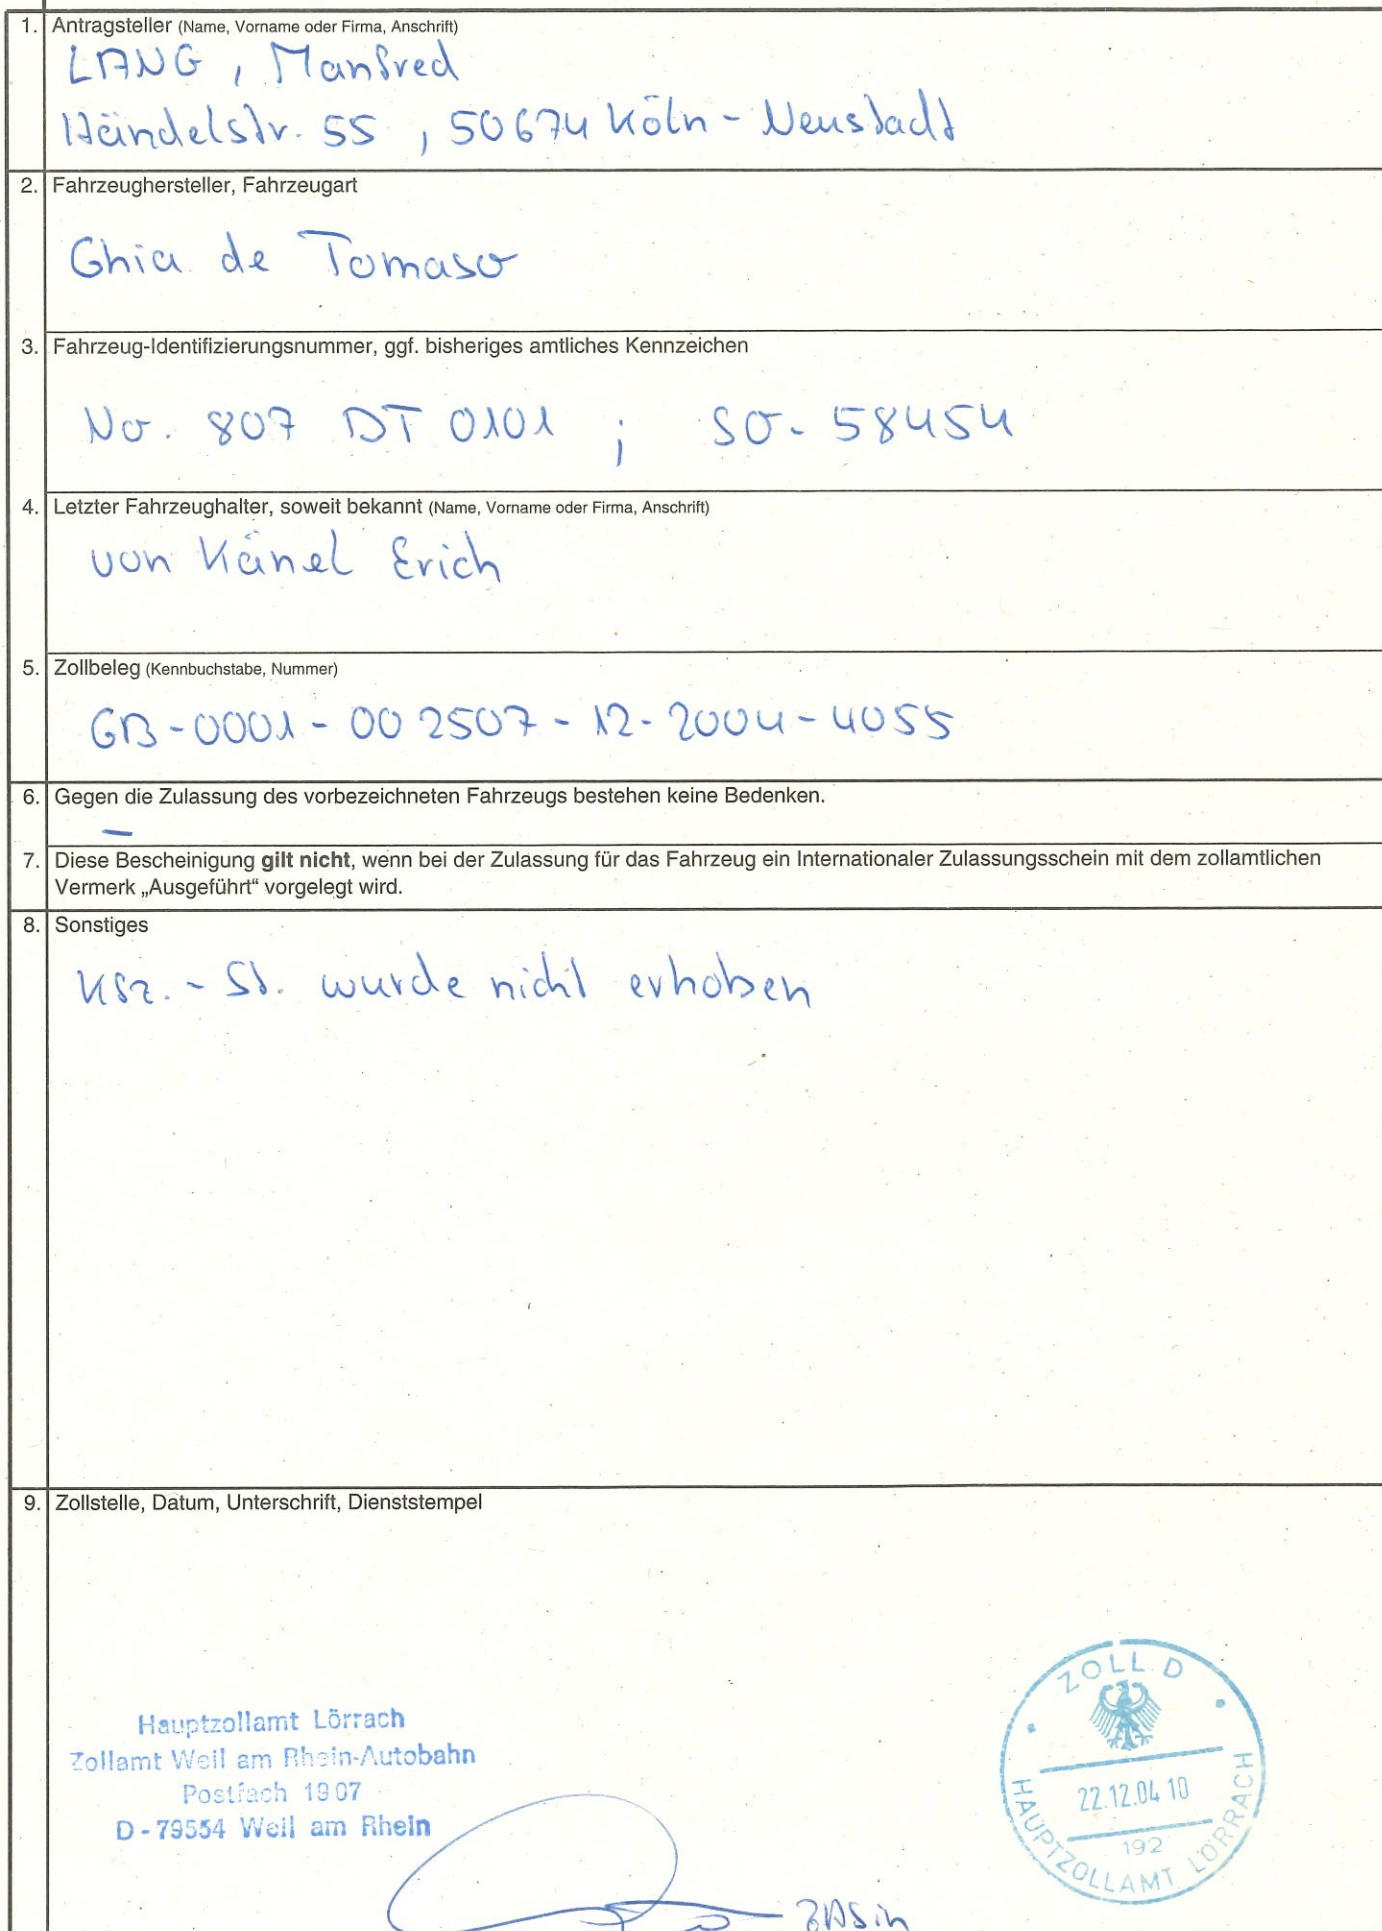 1. Antragsteller (Name, Vorname oder Firma, Anschrift)
LANG, Manfred
Händelstr. 55, 50674 Köln-Neustadt
2. Fahrzeughersteller, Fahrzeugart
Ghia de Tomaso
3. Fahrzeug-Identifizierungsnummer, ggf. bisheriges amtliches Kennzeichen
No. 807 DT 0101 ; SO-58454
4. Letzter Fahrzeughalter, soweit bekannt (Name, Vorname oder Firma, Anschrift)
von Känel Erich
5. Zollbeleg (Kennbuchstabe, Nummer)
GB-0001-00 2507-12-2004-4055
6. Gegen die Zulassung des vorbezeichneten Fahrzeugs bestehen keine Bedenken.
7. Diese Bescheinigung gilt nicht, wenn bei der Zulassung für das Fahrzeug ein Internationaler Zulassungsschein mit dem zollamtlichen
Vermerk „Ausgeführt“ vorgelegt wird.
8. Sonstiges
Kfz.-St. wurde nicht erhoben
9. Zollstelle, Datum, Unterschrift, Dienststempel
Hauptzollamt Lörrach
Zollamt Weil am Rhein-Autobahn
Postfach 1907
D-79554 Weil am Rhein
ZOLL D
22.12.04 10
192
HAUPTZOLLAMT LÖRRACH
ZASin